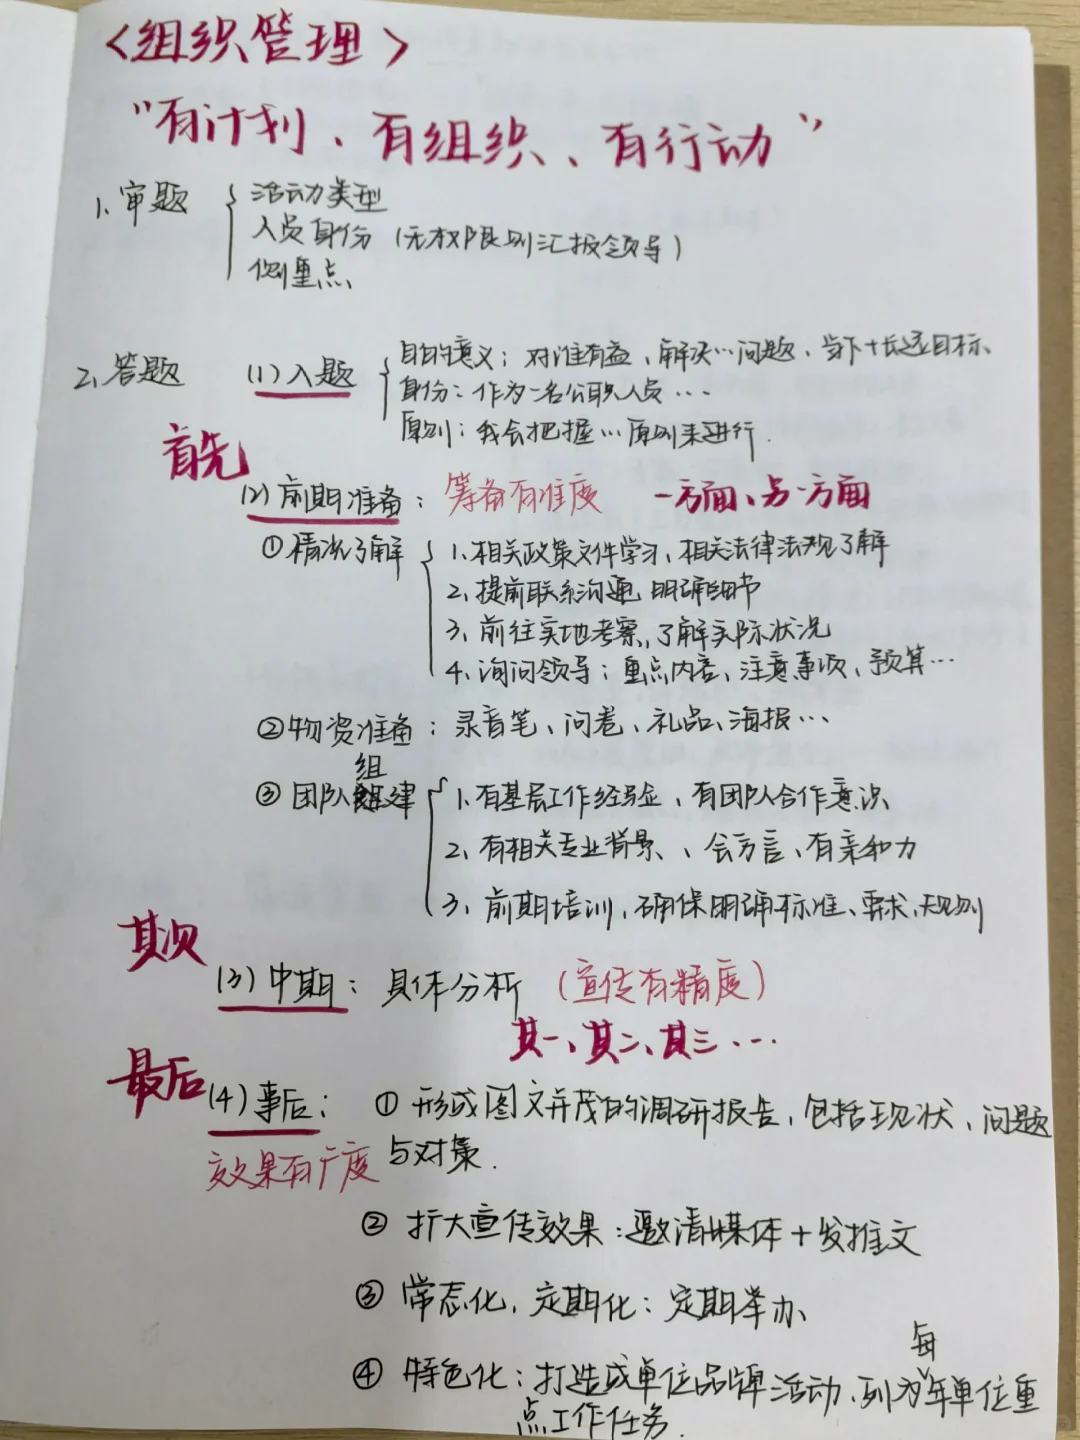 <组织管理>
"有计划、有组织、有行动"
1、审题 { 活动类型
人员身份（无权限则汇报领导）
侧重点
2、答题 (1)入题 { 目的意义：对谁有益、解决…问题、当下+长远目标、
身份：作为一名公职人员…
原则：我会把握…原则来进行.
首先
(2)前期准备：筹备有准度 一方面、另一方面
①情况了解 { 1、相关政策文件学习、相关法律法规了解
2、提前联系沟通 明确细节
3、前往实地考察,了解实际状况
4、询问领导：重点内容、注意事项、预算…
②物资准备：录音笔、问卷、礼品、海报…
③团队组建 { 1、有基层工作经验、有团队合作意识
2、有相关专业背景、、会方言、有亲和力
3、前期培训,确保明确标准、要求、规则
其次
(3)中期：具体分析（宣传有精度）
其一、其二、其三…
最后
(4)事后：①形成图文并茂的调研报告,包括现状、问题
与对策.
效果有广度
②扩大宣传效果：邀请媒体+发推文
③常态化,定期化：定期举办
④特色化：打造成单位品牌活动.列为每年单位重
点工作任务.